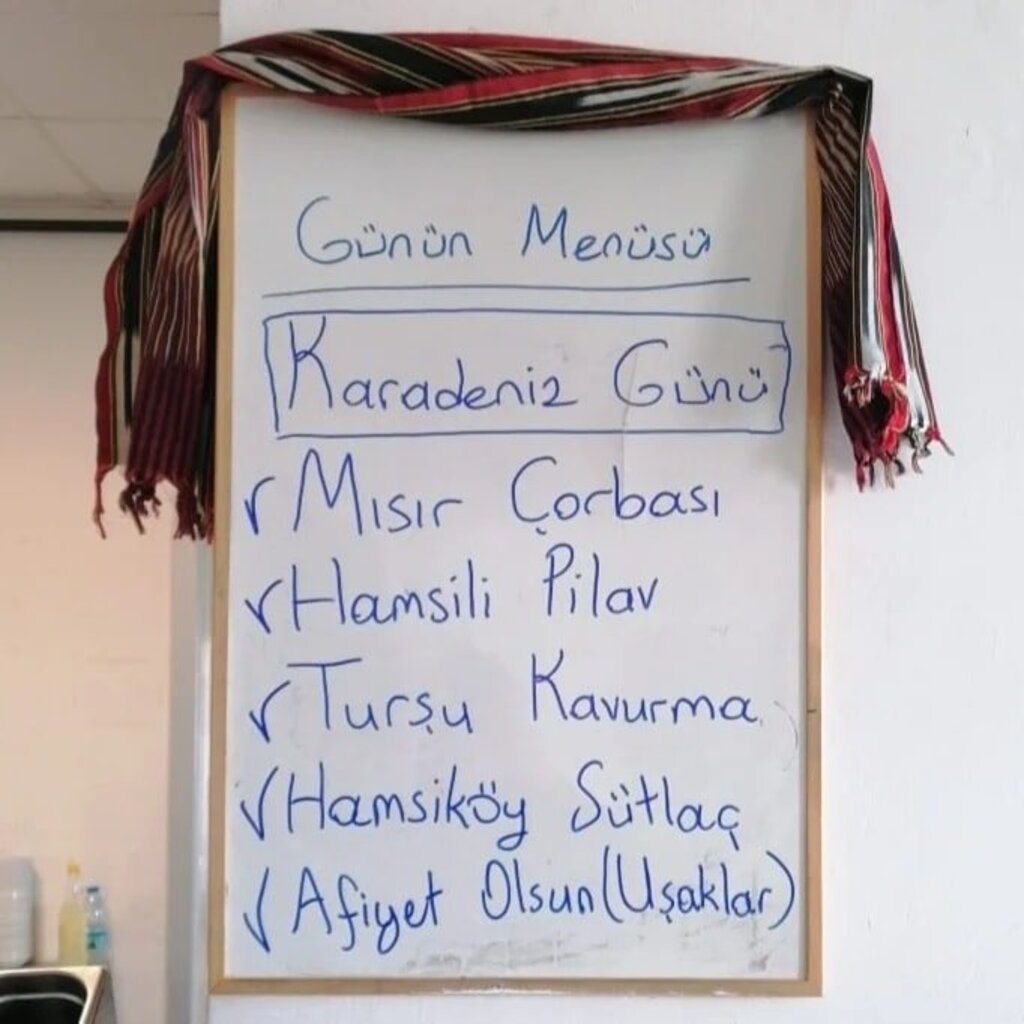 Günün Menüsü
Karadeniz Günü
✓ Mısır Çorbası
✓ Hamsili Pilav
✓ Turşu Kavurma
✓ Hamsiköy Sütlaç
✓ Afiyet Olsun (Uşaklar)